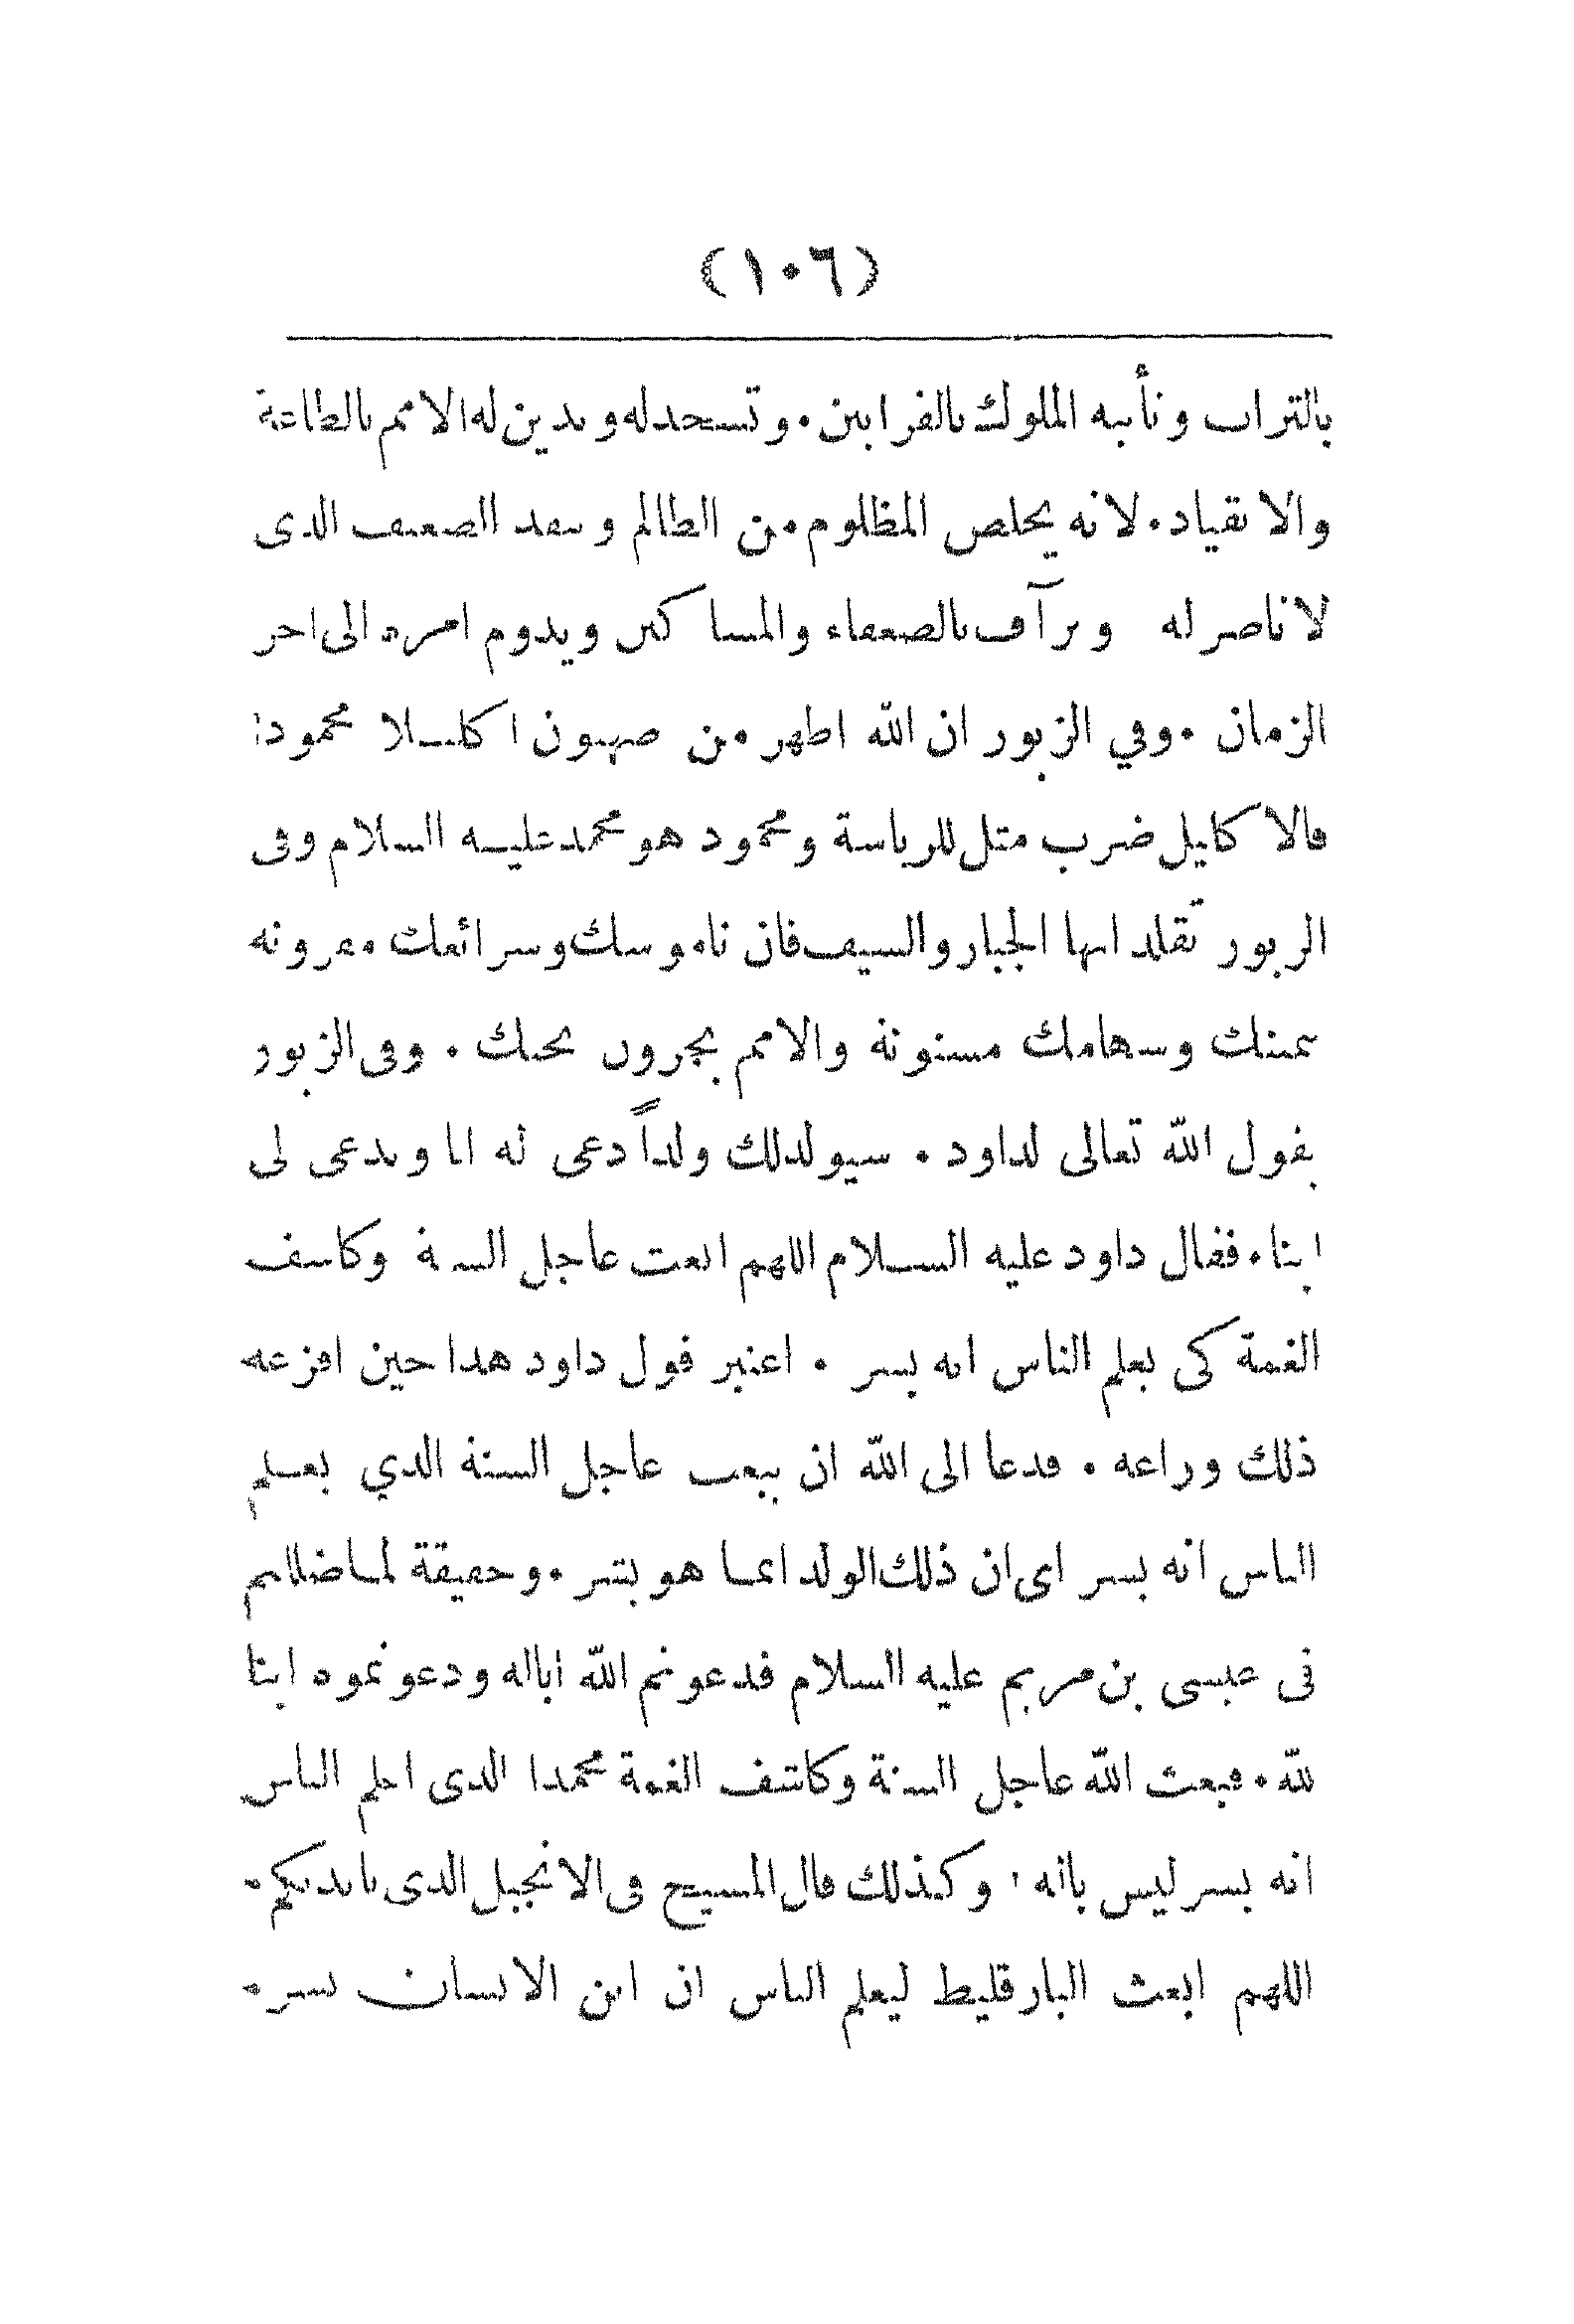 (١٠٦)
بالتراب وتأتيه الملوك بالقرابين • وتسجد له ويدين له الامم بالطاعة
والانقياد • لانه يخلص المظلوم من الظالم وينقذ الضعيف الذي
لا ناصر له ويرآف بالضعفاء والمساكين ويدوم امره الى اخر
الزمان • وفي الزبور ان الله اظهر من صهيون اكليلا محمودا
فالاكليل ضرب مثل للرياسة ومحمود هو محمد عليه السلام وفي
الزبور تقلد ايها الجبار والسيف فان ناموسك وشرائعك مقرونة
يمينك وسهامك مسنونة والامم يجرون تحتك • وفي الزبور
يقول الله تعالى لداود • سيولد لك ولداً دعى له ابا ويدعى لي
ابنا • فقال داود عليه السلام اللهم ابعث عاجل السنة وكاشف
الغمة كي يعلم الناس انه بشر • اعتبر قول داود هذا حين افزعه
ذلك وراعه • فدعا الى الله ان يبعث عاجل السنة الذي يعلم
الناس انه بشر اي ان ذلك الولد انما هو بشر • وحقيقة لما ضللتم
في عيسى بن مريم عليه السلام فدعوتم الله أبا له ودعوتموه ابنا
لله • فبعث الله عاجل السنة وكاشف الغمة محمدا الذي اعلم الناس
انه بشر ليس باله • وكذلك قال المسيح في الانجيل الذي بايديكم •
اللهم ابعث البارقليط ليعلم الناس ان ابن الانسان بشر •